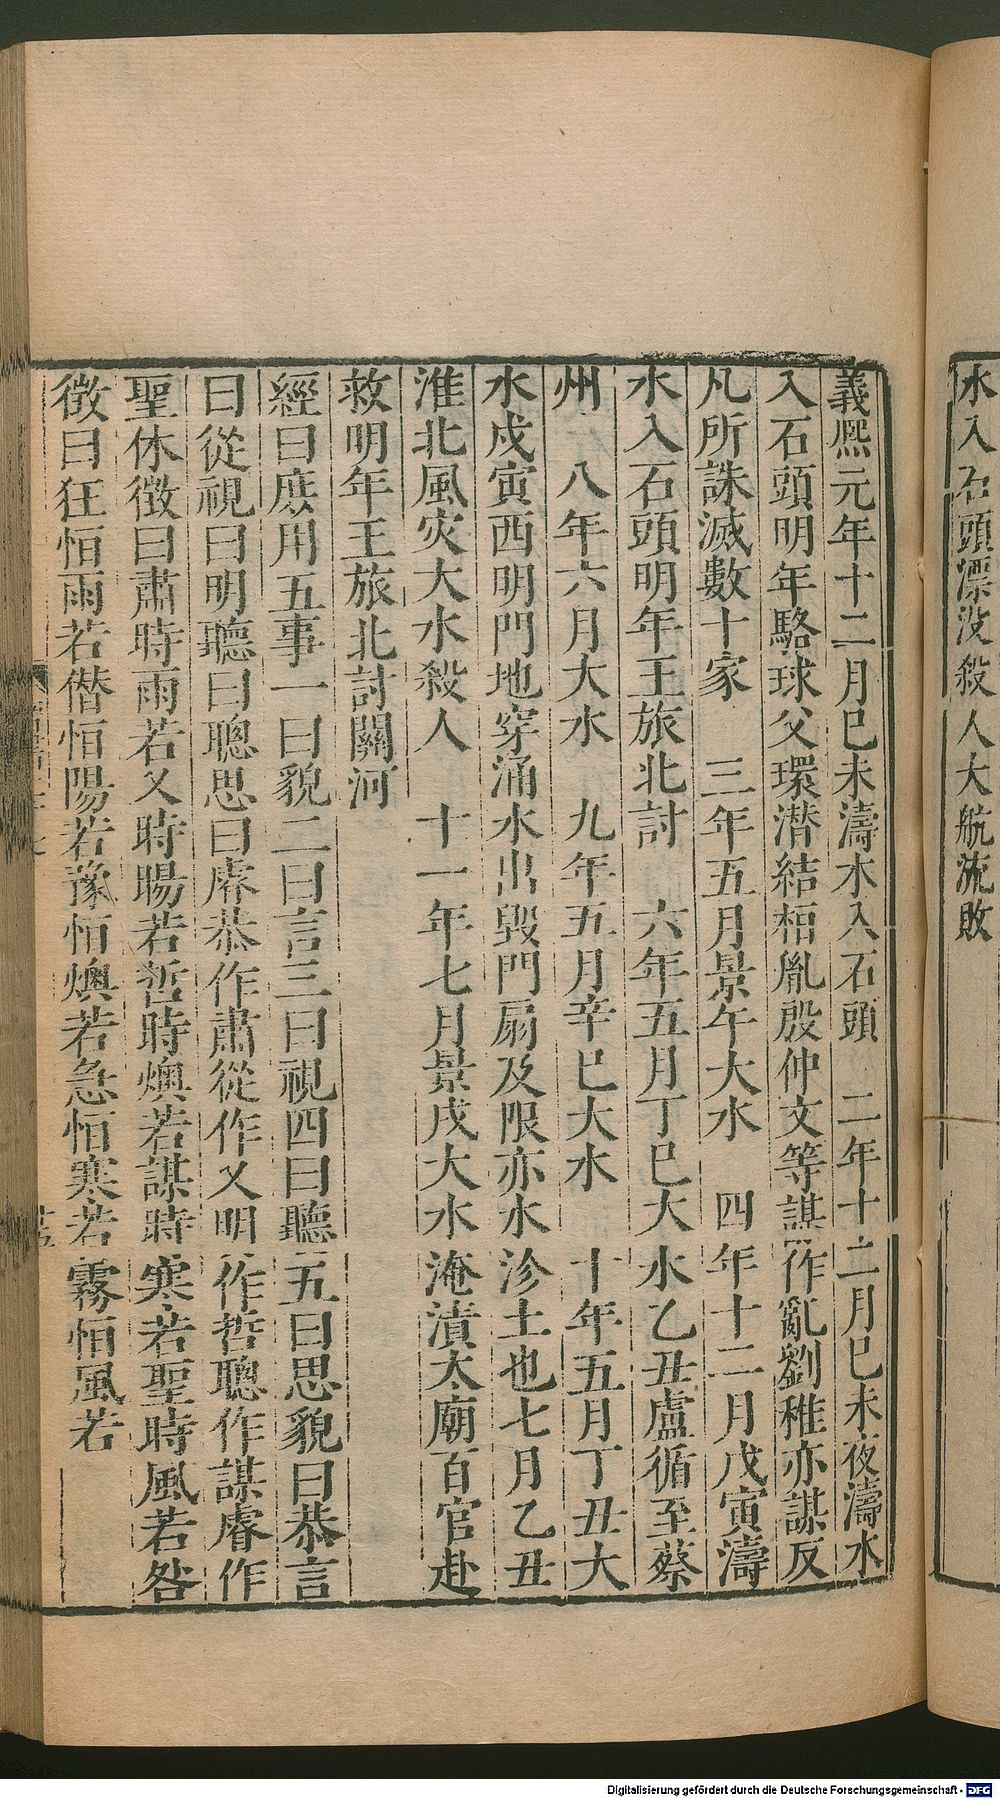 水入石頭漂沒殺人大航流敗
義熙元年十二月巳未濤水入石頭　二年十二月巳未夜濤水
入石頭明年駱球父環潛結桓胤殷仲文等謀作亂劉稚亦謀反
凡所誅滅數十家　三年五月景午大水　四年十二月戊寅濤
水入石頭明年王旅北討　六年五月丁巳大水乙丑盧循至蔡
州　八年六月大水　九年五月辛巳大水　十年五月丁丑大
水戊寅西明門地穿涌水出毀門扇及限亦水沴土也七月乙丑
淮北風灾大水殺人　十一年七月景戌大水淹漬太廟百官赴
救明年王旅北討關河
經曰庶用五事一曰貌二曰言三曰視四曰聽五曰思貌曰恭言
曰從視曰明聽曰聰思曰睿恭作肅從作乂明作哲聰作謀睿作
聖休徵曰肅時雨若乂時暘若哲時燠若謀時寒若聖時風若咎
徵曰狂恒雨若僭恒陽若豫恒燠若急恒寒若霧恒風若
Digitalisierung gefördert durch die Deutsche Forschungsgemeinschaft - DFG